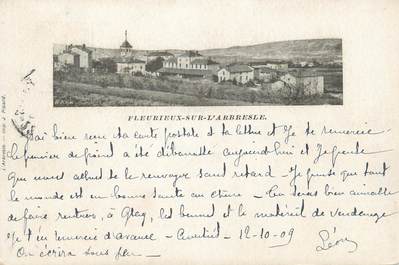 FLEURIEUX-SUR-L'ARBRESLE.
J'ai bien reçu ta carte postale et ta lettre et Je te remercie
Le panier de a été débarrassé aujourd'hui et Je
que nous allons de le renvoyer sans retard. Je pense que tout
le monde est en bonne santé au chêne. Tu serais bien aimable
de faire rentrer, à les bennes et le matériel de vendange
Je t'en remercie d'avance 12-10-09 Léon
On écrira sous peu
L'Arbresle. — imp. J. Picard.